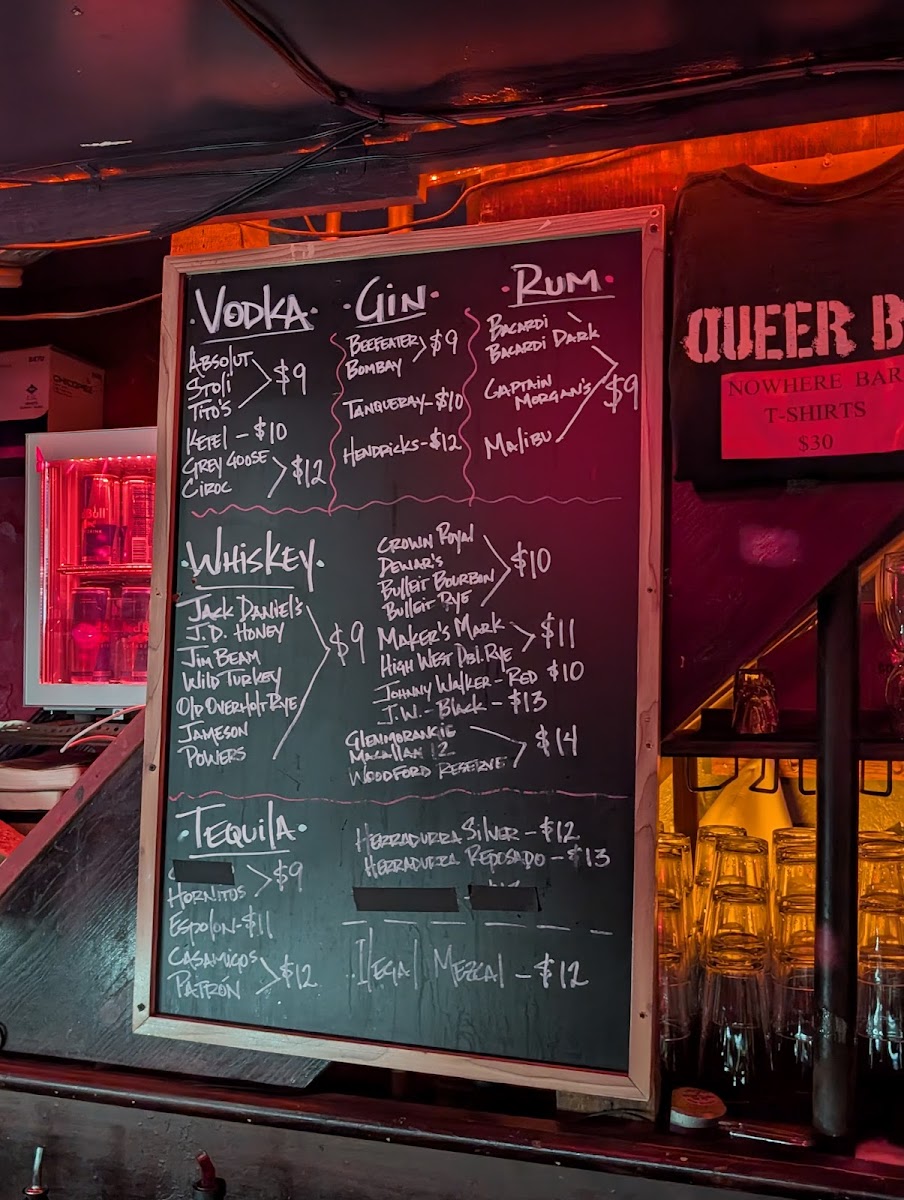 ·VODKA·
ABSOLUT
STOLI
TITO'S
$9
KETEL - $10
GREY GOOSE
CIROC
$12
·GIN·
BEEFEATER
BOMBAY
$9
TANQUERAY - $10
HENDRICKS - $12
·RUM·
BACARDI
BACARDI DARK
CAPTAIN
MORGAN'S
MALIBU
$9
·WHISKEY·
JACK DANIEL'S
J.D. HONEY
JIM BEAM
WILD TURKEY
Old OVERHOLT RYE
JAMESON
POWERS
$9
CROWN ROYAL
DEWAR'S
BULLEIT BOURBON
BULLEIT RYE
$10
MAKER'S MARK
HIGH WEST DBL. RYE
$11
JOHNNY WALKER - RED $10
J.W. - BLACK - $13
GLENMORANGIE
MACALLAN 12
WOODFORD RESERVE
$14
·TEQUILA·
HORNITOS
$9
ESPOLON - $11
CASAMIGOS
PATRON
$12
HERRADURRA SILVER - $12
HERRADURRA REPOSADO - $13
ILEGAL MEZCAL - $12
QUEER B
NOWHERE BAR
T-SHIRTS
$30